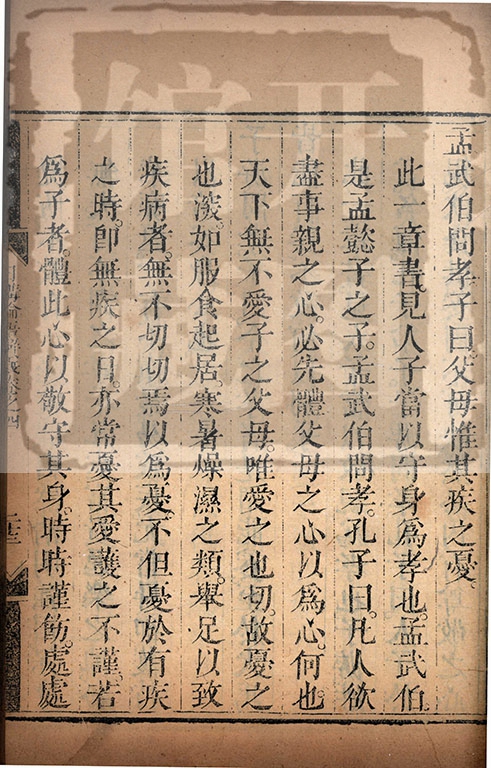 孟武伯問孝子曰父母惟其疾之憂。
此一章書見人子當以守身爲孝也。孟武伯
是孟懿子之子。孟武伯問孝。孔子曰。凡人欲
盡事親之心。必先體父母之心以爲心。何也。
天下無不愛子之父母。唯愛之也切。故憂之
也深。如服食起居。寒暑燥濕之類。舉足以致
疾病者。無不切切焉以爲憂。不但憂於有疾
之時。卽無疾之日。亦常憂其愛護之不謹。若
爲子者。體此心以敬守其身。時時謹飭。處處